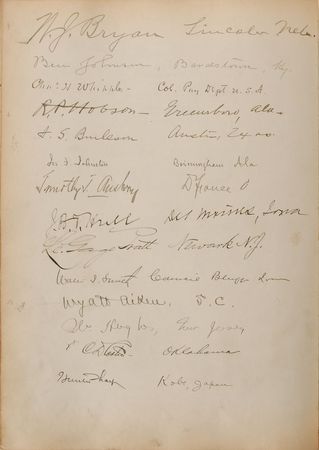 W. J. Bryan Lincoln Neb.
Ben Johnson, Bardstown, Ky.
Chas. H Whipple Col. Pay Dept U.S.A.
R. P. Hobson Greensboro, Ala
Burleson Austin, Texas
Jos. F. Johnston Birmingham Ala
Timothy T. Ansberry Defiance O
Hull Des Moines, Iowa
Le Gage Pratt Newark N.J.
Walter I. Smith Council Bluffs Iowa
Wyatt Aiken, S.C.
Wm Hughes, New Jersey
Oklahoma
Kobe, Japan